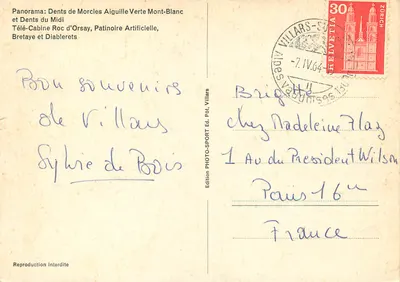 Panorama: Dents de Morcles Aiguille Verte Mont-Blanc
et Dents du Midi
Télé-Cabine Roc d'Orsay, Patinoire Artificielle,
Bretaye et Diablerets
Bon souvenirs
de Villars
Sylvie de Bois
Reproduction interdite
Edition PHOTO-SPORT Ed. Pöl, Villars
VILLARS-S
-7.IV.64-
Alpes vaudoises
30
HELVETIA
Brigitte
chez Madeleine Flaz
1 Av du President Wilson
Paris 16
France